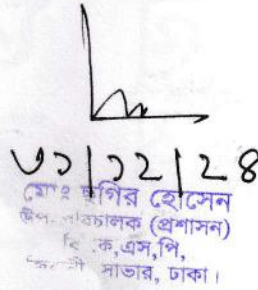 ৩১|১২|২৪
মোঃ ছগির হোসেন
উপ-পরিচালক (প্রশাসন)
বি.ক,এস,পি,
সাভার, ঢাকা।